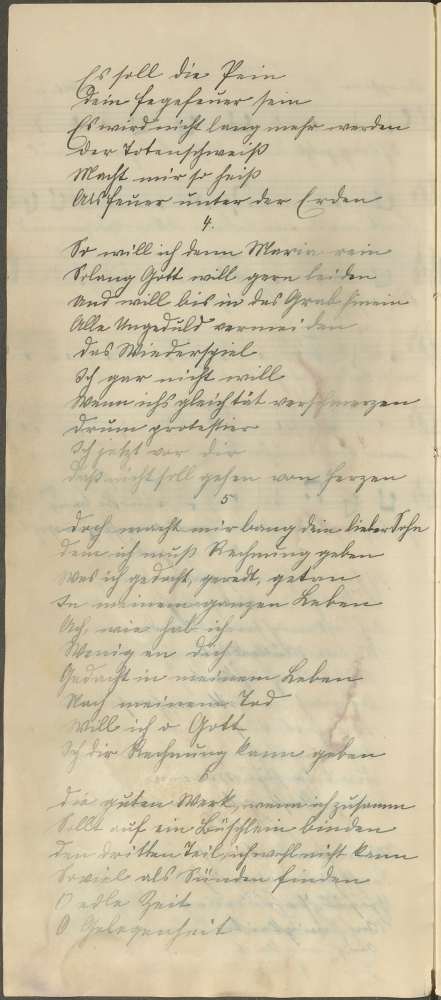 Es soll die Pein
Dein Fegefeuer sein
Es wird nicht lang mehr werden
Der Totenschweiß
Macht mir so heiß
Als Feuer unter der Erden
4.
So will ich denn Maria rein
Solang Gott will gern leiden
Und will bis in das Grab hinein
Alle Ungeduld vermeiden
Das Wiederspiel
Ich gar nicht will
Wenn ichs gleich tät verschmerzen
Drum protestier
Ich jetzt vor dir
Daß nicht soll gehen von Herzen
5
Doch macht mir bang dein lieber Sohn
Dem ich muß Rechnung geben
Was ich gedacht, geredt, getan
In meinem ganzen Leben
Ach, wie hab ich
Wenig an dich
Gedacht in meinem Leben
Nach meinem Tod
Will ich o Gott
Ich dir Rechnung kann geben
6
Die guten Werk, wenn ich zusamm
Sollt auf ein Büschlein binden
Den dritten Teil ich wohl nicht kann
Soviel als Sünden finden
O edle Zeit
O Gelegenheit